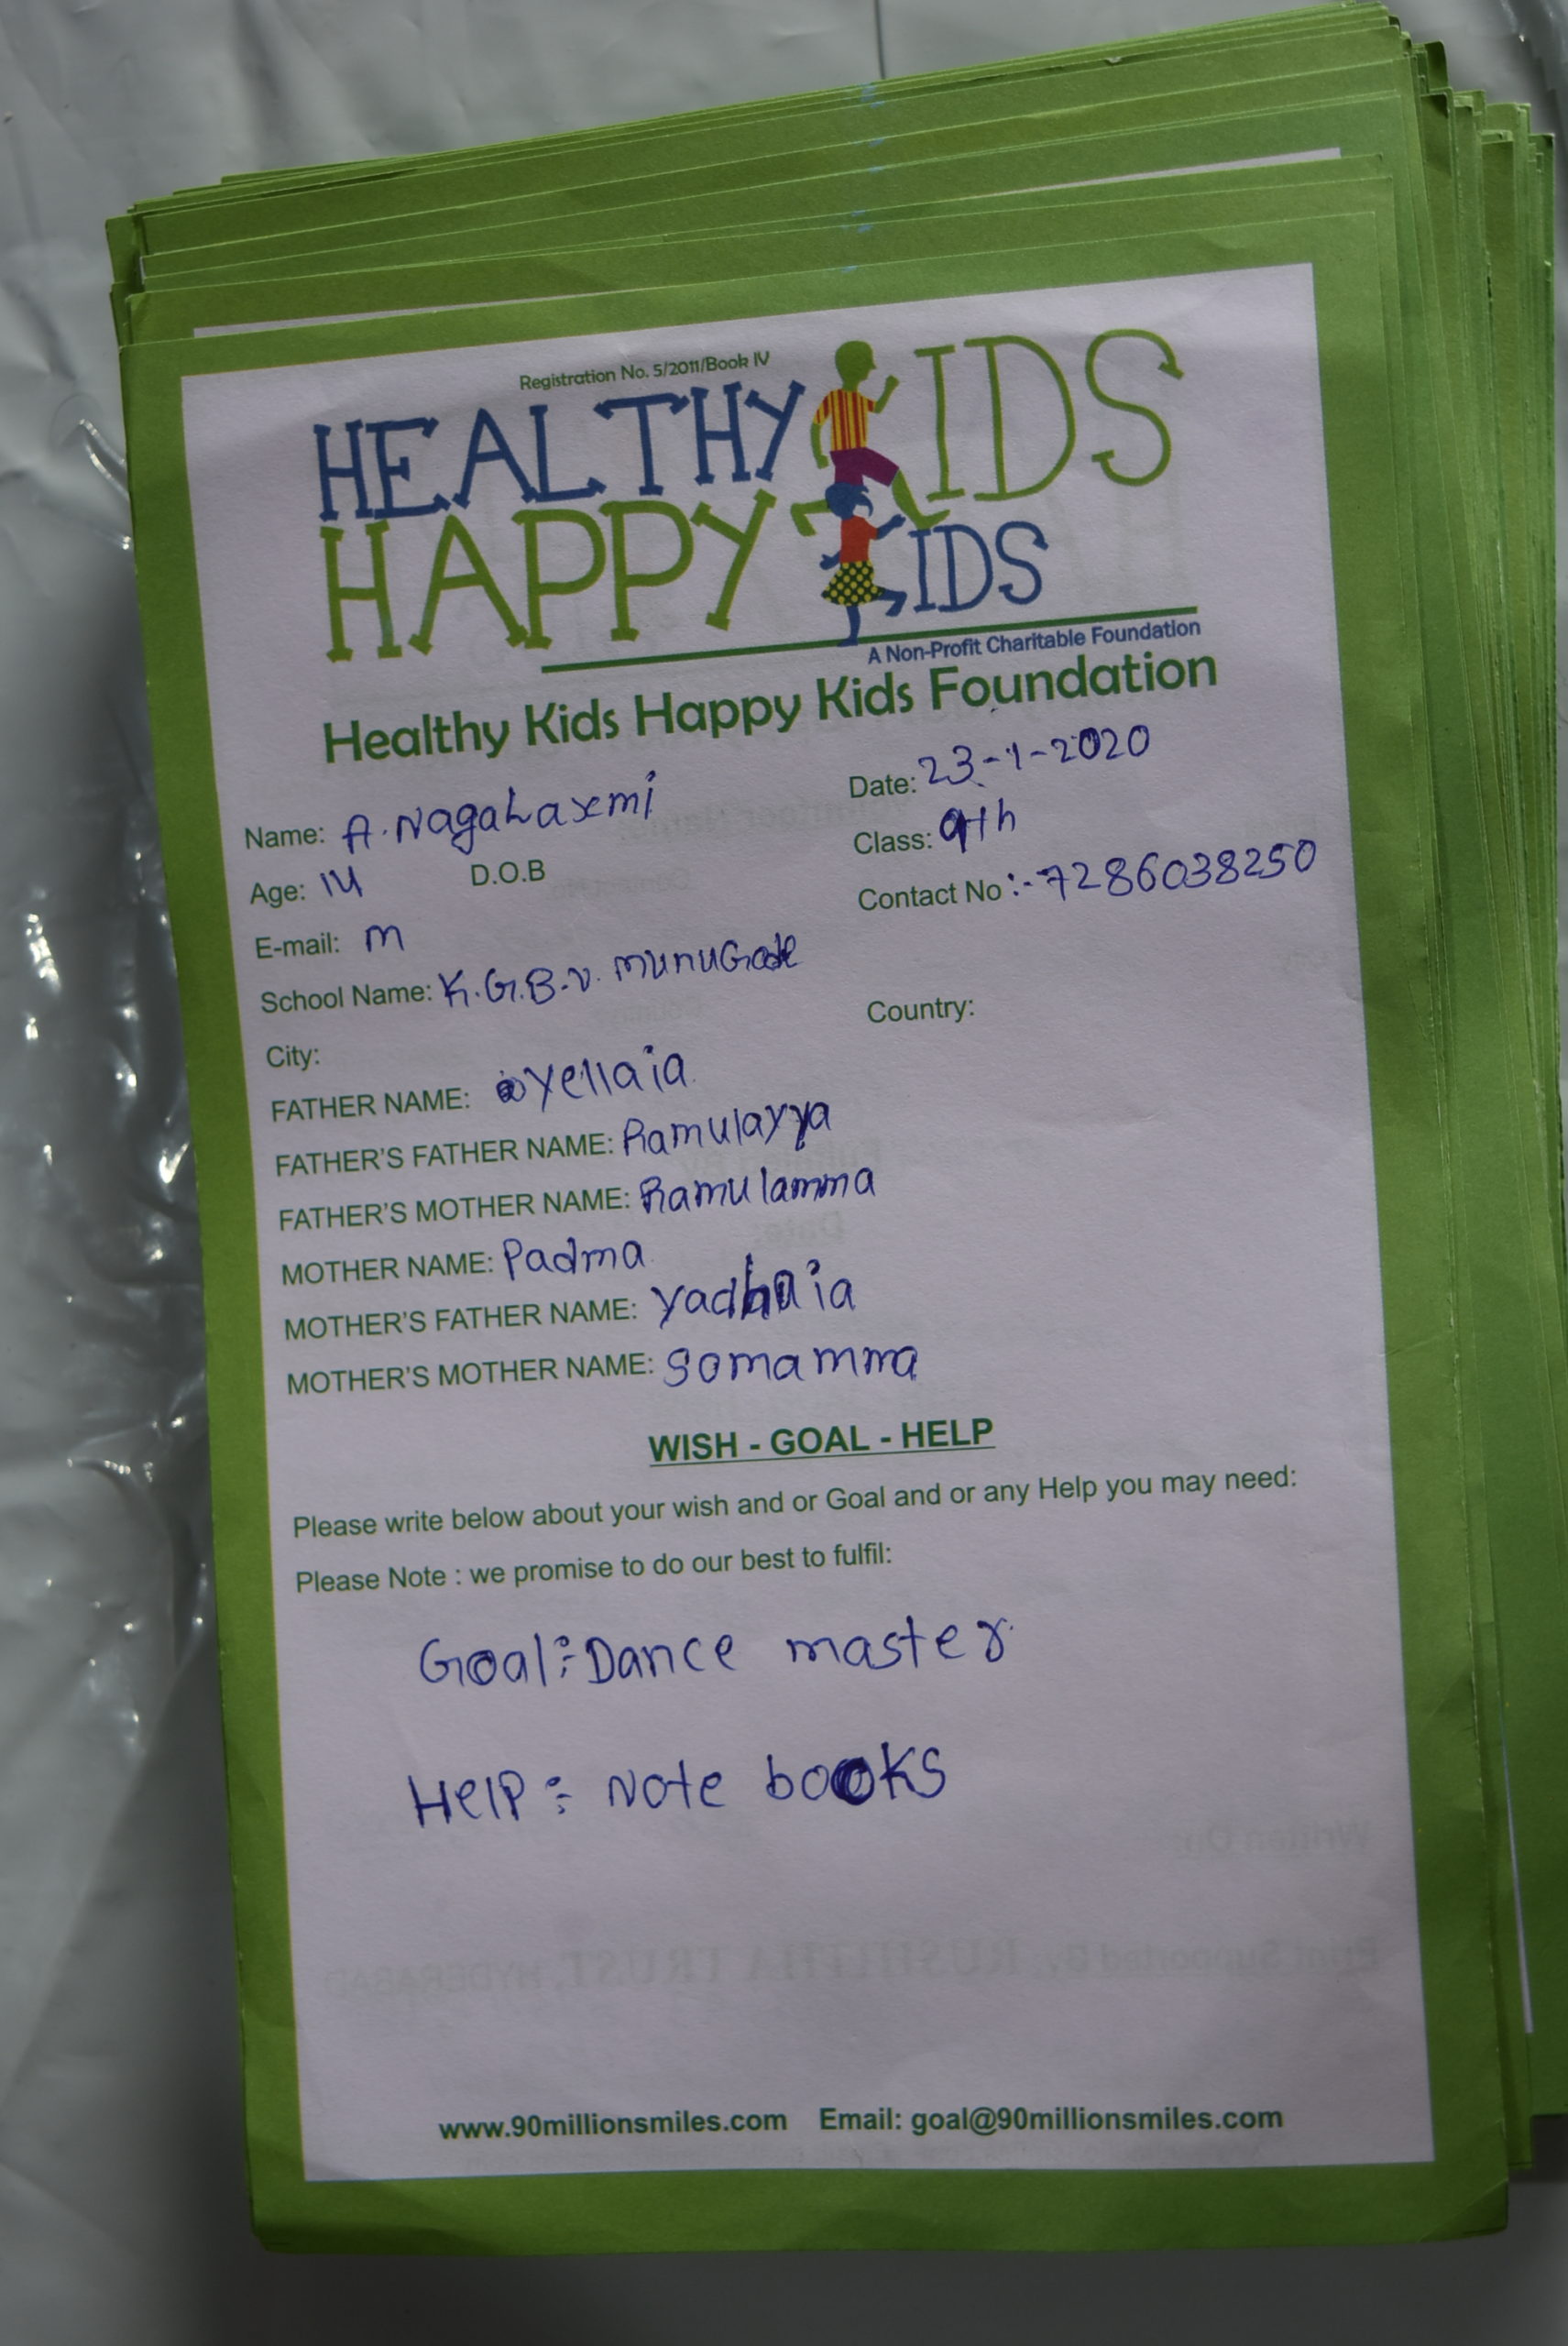 Registration No. 5/2011/Book IV
HEALTHY KIDS
HAPPY KIDS
A Non-Profit Charitable Foundation
Healthy Kids Happy Kids Foundation
Name: A. NagaLaxmi Date: 23-1-2020
Age: 14 D.O.B Class: 9th
E-mail: m Contact No :- 7286038250
School Name: K.G.B.V. munuGode
City: Country:
FATHER NAME: Yellaia
FATHER'S FATHER NAME: Ramulayya
FATHER'S MOTHER NAME: Ramulamma
MOTHER NAME: Padma
MOTHER'S FATHER NAME: Yadhaia
MOTHER'S MOTHER NAME: Somamma
WISH - GOAL - HELP
Please write below about your wish and or Goal and or any Help you may need:
Please Note : we promise to do our best to fulfil:
Goal:- Dance master
Help:- Note books
www.90millionsmiles.com Email: goal@90millionsmiles.com